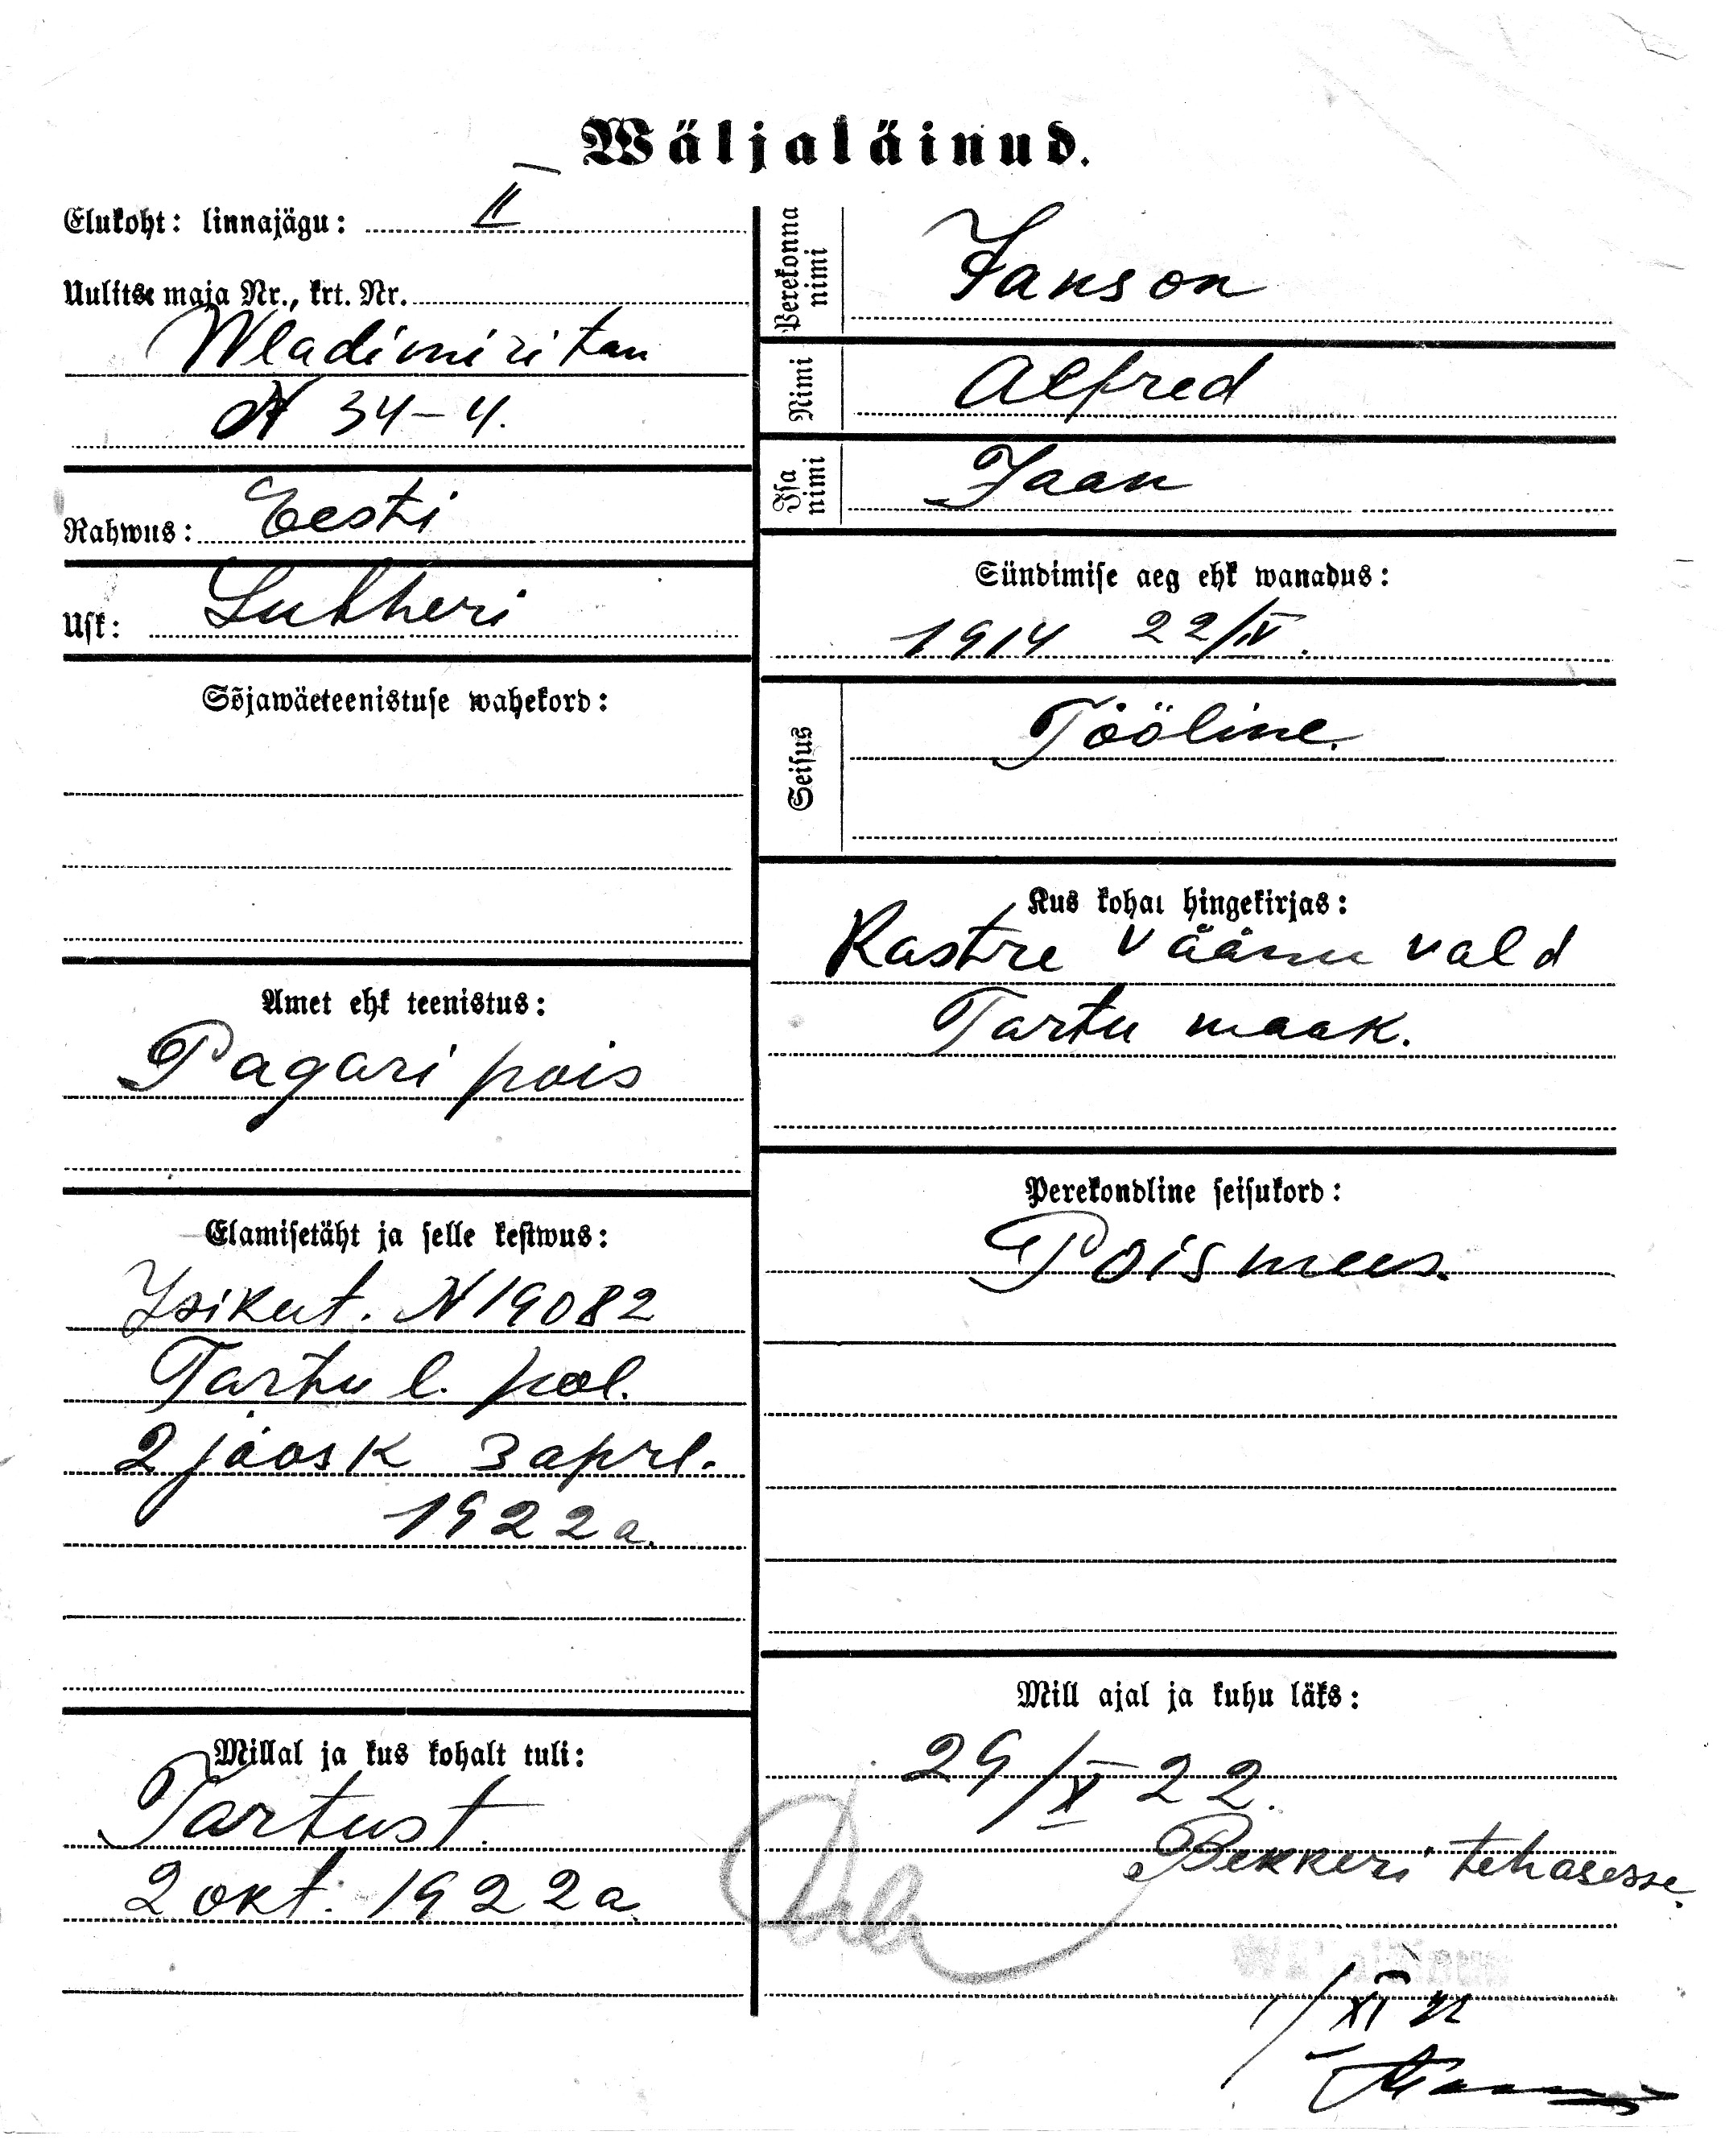 Wäljaläinud.
Elukoht: linnajägu: II
Uulitse maja Nr., krt. Nr.
Wladimiri tän
N 34-4.
Rahwus: Eesti
Usk: Lutheri
Sõjawäeteenistuse wahekord:
Amet ehk teenistus:
Pagari pois
Elamisetäht ja selle kestwus:
Isikut. N 19082
Tartu l. pol.
2 jaosk 3 aprl.
1922 a.
Millal ja kus kohalt tuli:
Tartust
2 okt. 1922 a.
Perekonna nimi
Janson
Nimi
Alfred
Isa nimi
Jaan
Sündimise aeg ehk wanadus:
1914 22/IV.
Seisus
Tööline.
Kus kohal hingekirjas:
Kastre Väänu vald
Tartu maak.
Perekondline seisukord:
Poismees.
Mill ajal ja kuhu läks:
29/X 22.
Bekkeri tehasesse.
1/XI 22